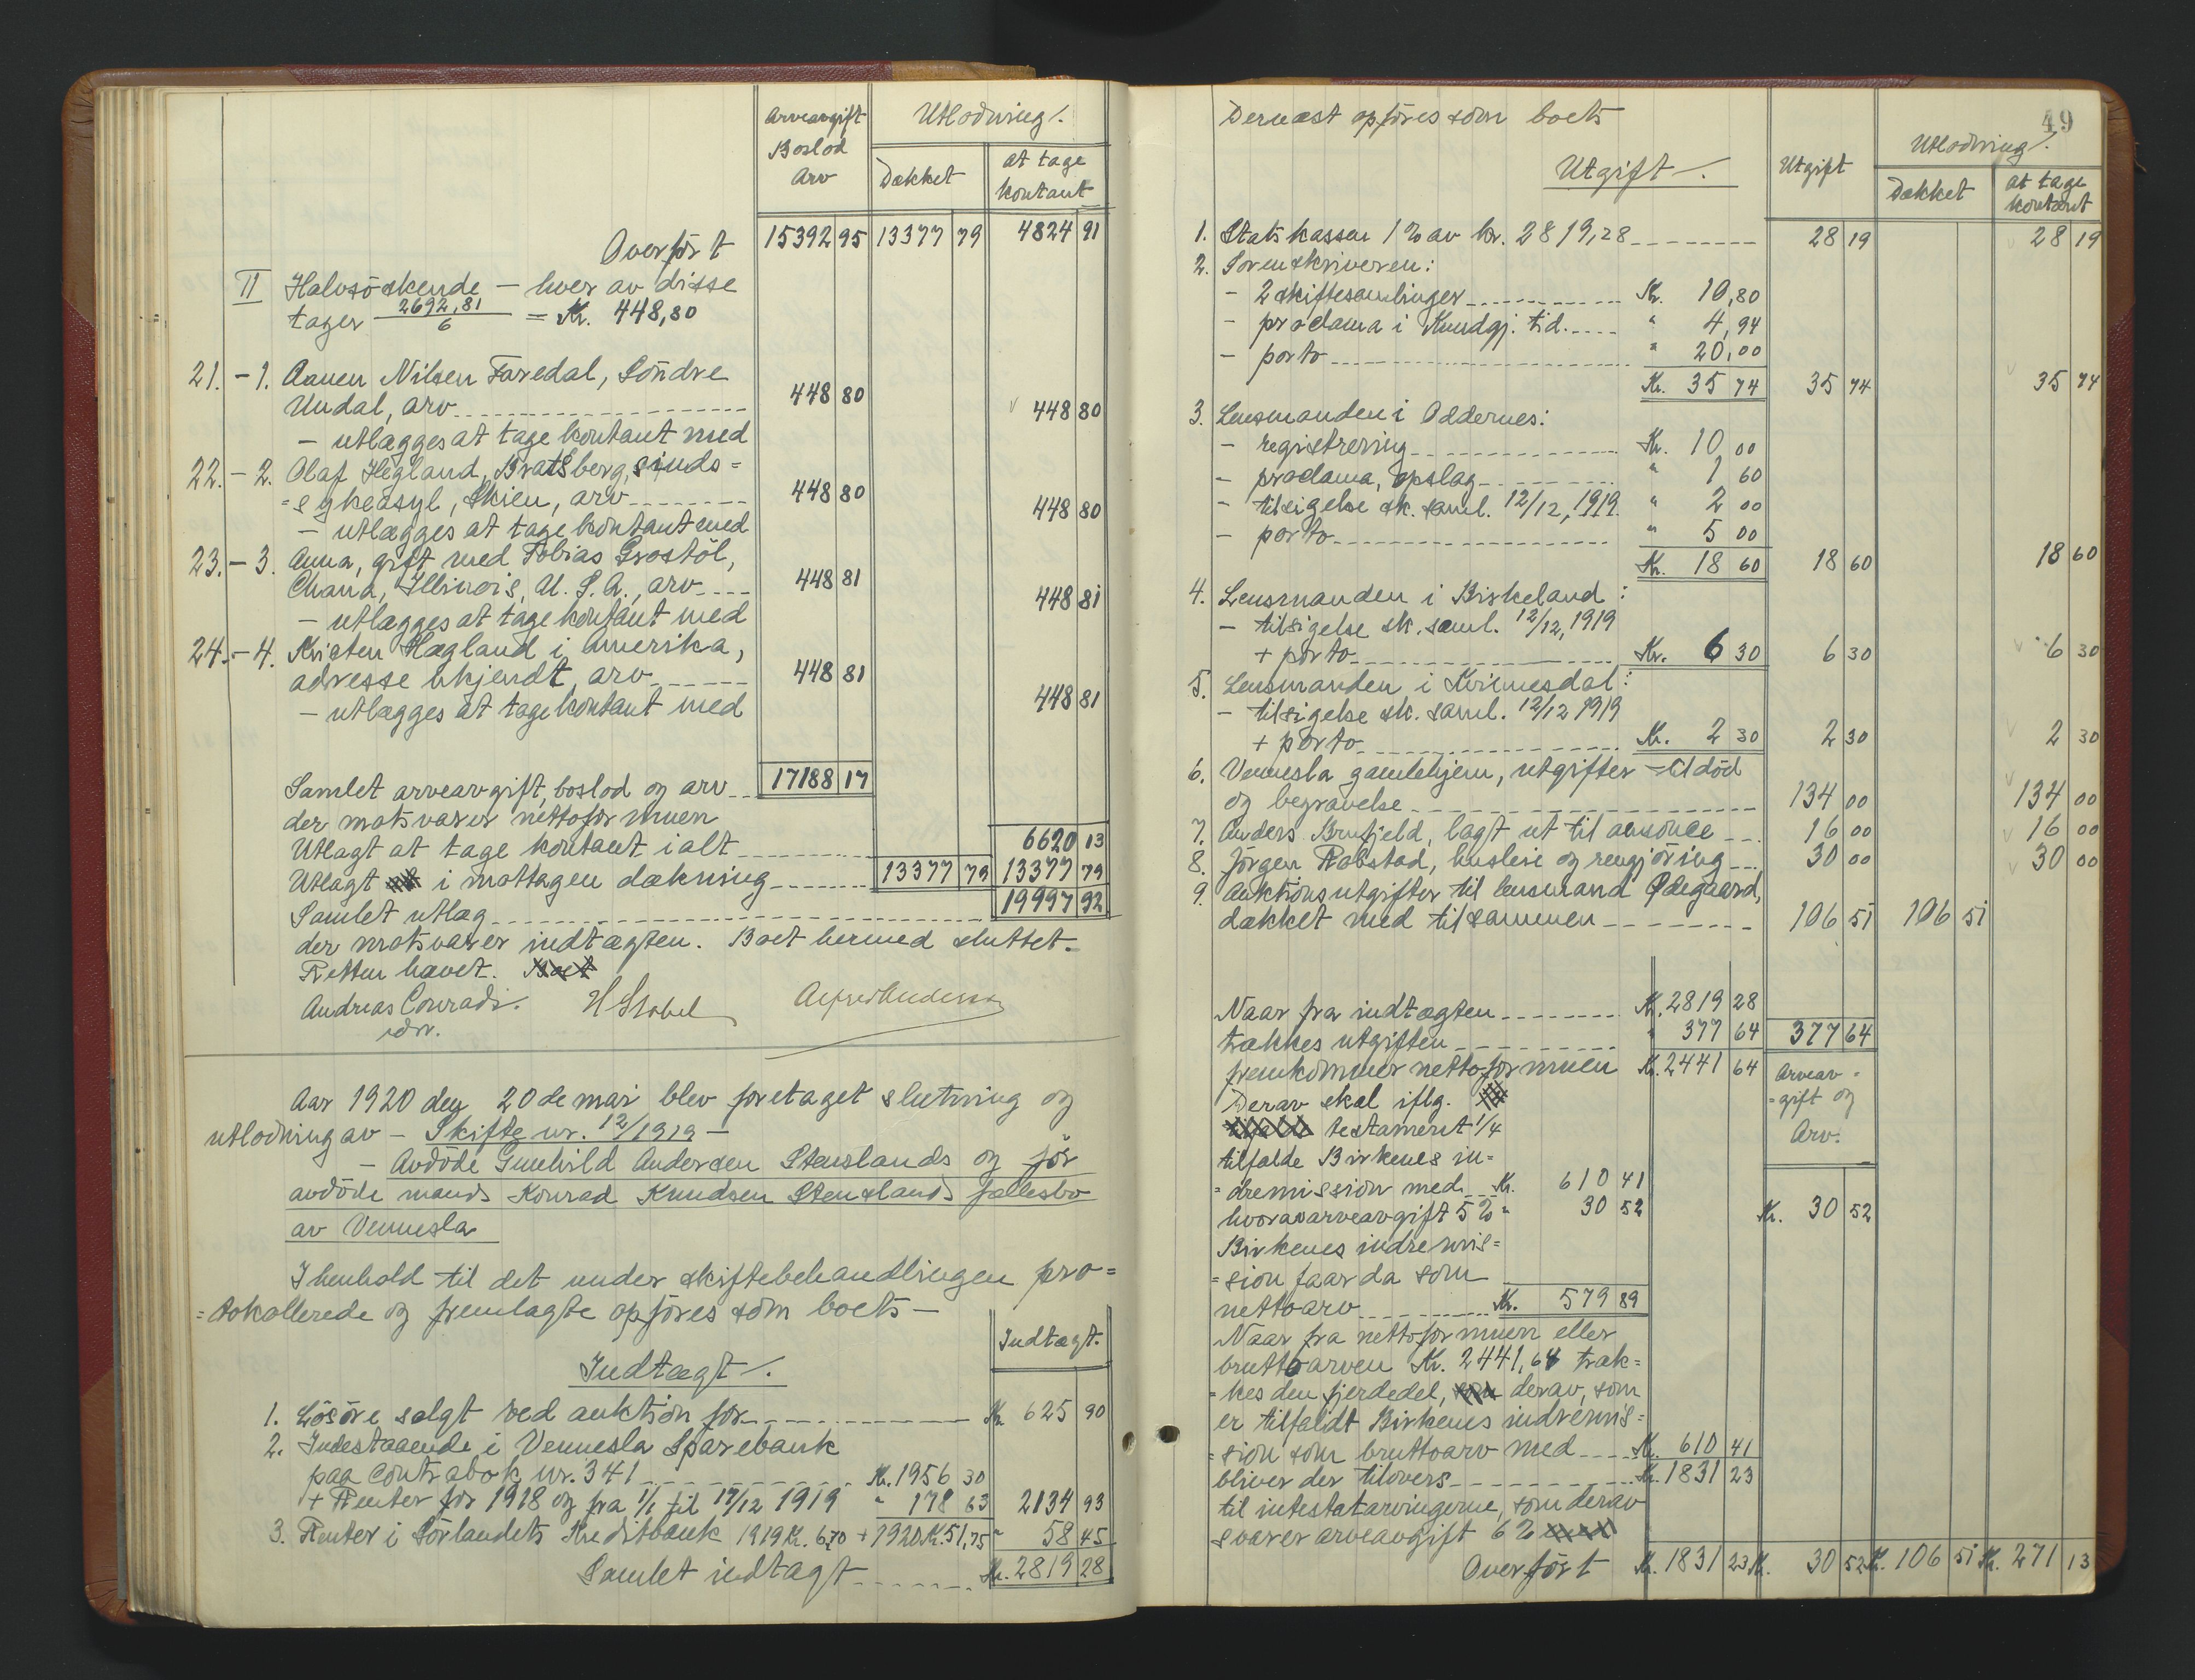 Arveavgift
Boslod
Arv
Utlodning/.
Dækket
At tage
kontant
Overført 15392 95 13377 79 4824 91
II Halvsøskende – hver av disse
tager 2692,81/6 = Kr. 448,80
21. – 1. Aanen Nilsen Faredal, Söndre
Undal, arv 448 80 448 80
– utlægges at tage kontant med
22. – 2. Olaf Hegland, Bratsberg, sinds=
=sykeasyl, Skien, arv 448 80 448 80
– utlægges at tage kontant med
23. – 3. Anna, gift med Tobias Grostöl,
Chana, Illinois, U.S.A., arv 448 81 448 81
– utlægges at tage kontant med
24. – 4. Kristen Hægland i Amerika,
adresse ukjendt, arv 448 81 448 81
– utlægges at tage kontant med
Samlet arveavgift, boslod og arv 17188 17
der motsvarer nettoformuen
Utlagt at tage kontant ialt 6620 13
Utlagt i mottagen dækning 13377 79 13377 79
Samlet utlæg 19997 92
der motsvarer indtægten. Boet hermed sluttet.
Retten hævet. Boet
Andreas Conradi.
H Stobel
Alfred Andersen
Aar 1920 den 20de mai blev foretaget slutning og
utlodning av – Skifte nr. 12/1919 –
– Avdöde Gunhild Andersen Stenslands og før
avdöde mands Konrad Knudsen Stenslands fællesbo
av Vennesla
I henhold til det under skiftebehandlingen pro=
=tokollerede og fremlagte opføres som boets –
Indtægt.
Indtægt/.
1. Lösöre solgt ved auktion for Kr. 625 90
2. Indestaaende i Vennesla Sparebank
paa Contrabok nr. 341 Kr. 1956 30
+ Renter for 1918 og fra 1/1 til 17/12 1919 " 178 63 2134 93
3. Renter i Sörlandets Kreditbank 1919 Kr. 6,70 + 1920 Kr. 51,75 " 58 45
Samlet indtægt Kr. 2819 28
49
Dernæst opføres som boets
Utgift/.
Utgift
Utlodning/.
Dækket
At tage
kontant
1. Statskassen 1% av kr. 2819,28 28 19 28 19
2. Sorenskriveren:
– 2 skiftesamlinger Kr. 10,80
– proclama i Kundgj. tid. " 4,94
– porto " 20,00
Kr. 35 74 35 74 35 74
3. Lensmanden i Oddernes:
– registrering Kr. 10 00
– proclama, opslag " 1 60
– tilsigelse sk. saml. 12/12, 1919. " 2 00
– porto " 5 00
Kr. 18 60 18 60 18 60
4. Lensmanden i Birkeland:
– tilsigelse sk. saml. 12/12, 1919
+ porto Kr. 6 30 6 30 6 30
5. Lensmanden i Kvinnesdal:
– tilsigelse sk. saml. 12/12 1919
+ porto Kr. 2 30 2 30 2 30
6. Vennesla gamlehjem, utgifter til död
og begravelse 134 00 134 00
7. Anders Brufjeld, lagt ut til annonce 16 00 16 00
8. Jörgen Rabstad, husleie og rengjöring 30 00 30 00
9. Auktionsutgifter til lensmand Ødegaard,
dækket med tilsammen 106 51 106 51
Naar fra indtægten Kr. 2819 28
trækkes utgiften " 377 64 377 64
fremkommer nettoformuen Kr. 2441 64
Arveav=
=gift og
Arv.
Derav skal iflg.
testament 1/4
tilfalde Birkenes in=
=dremission med Kr. 610 41
hvorav arveavgift 5% " 30 52 Kr. 30 52
Birkenes indremis=
=sion faar da som
nettoarv Kr. 579 89
Naar fra nettoformuen eller
bruttoarven Kr. 2441,64 træk=
=kes den fjerdedel, derav, som
er tilfaldt Birkenes indremis=
=sion som bruttoarv med Kr. 610 41
bliver der tilovers Kr. 1831 23
til intestatarvingerne, som derav
svarer arveavgift 6%
Overført Kr. 1831 23 Kr. 30 52 Kr. 106 51 Kr. 271 13